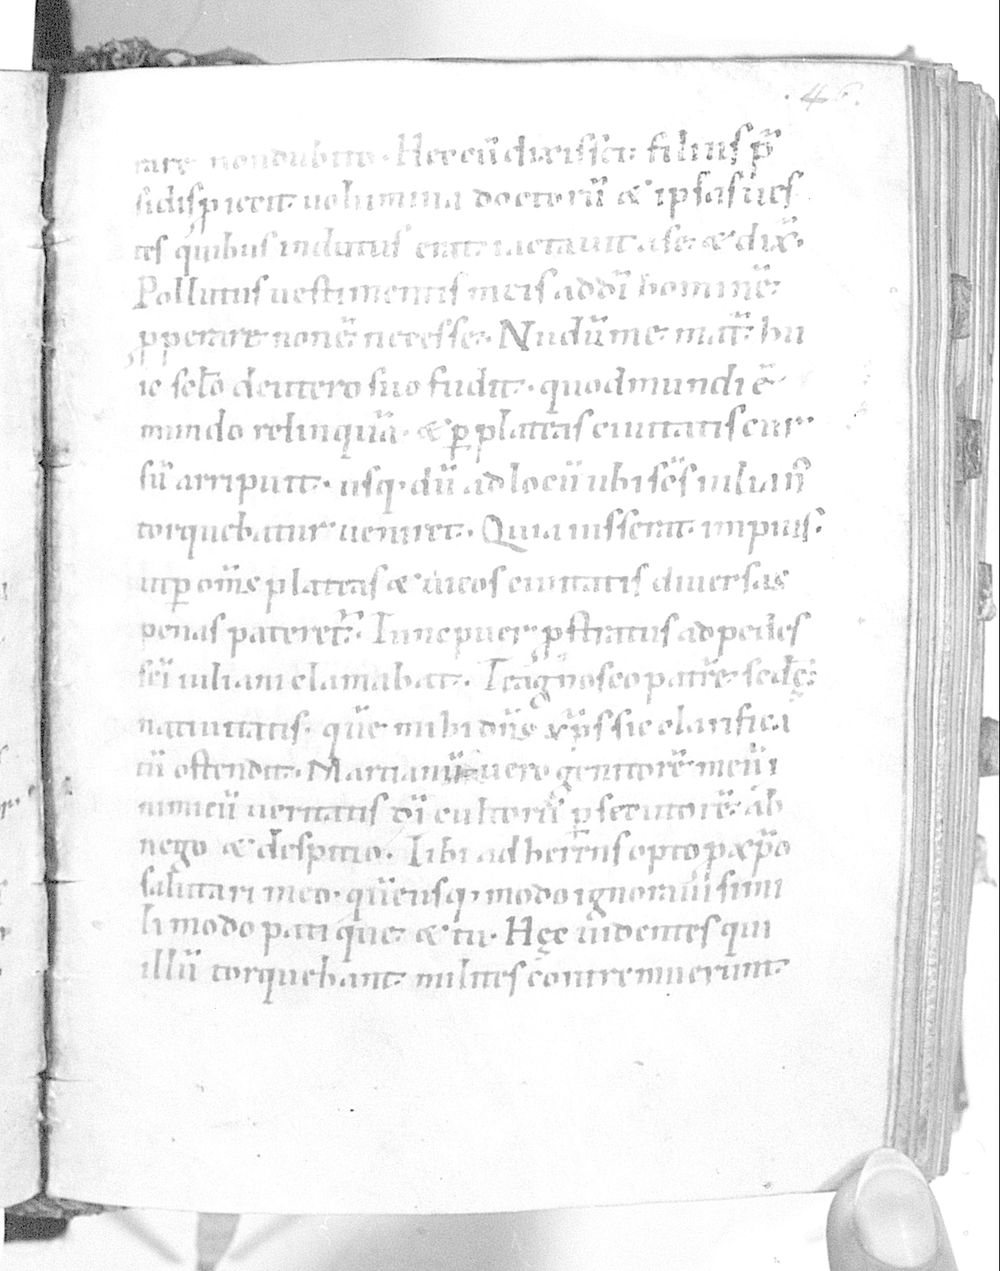 .46.
rare non dubito. Hec cū dixisset: filius p̄
sidis picit uolumina doctorū & ipsas ues
tes quibus indutus erat iactauit a se. & dix̄.
Pollutus uestimentis meis ad dī hominē
pperare non ē necesse. Nudū me mat̄ hu
ic sc̄lo de utero suo fudit. quod mundi ē
mundo relinquā. & p plateas ciuitatis cur
sū arripuit. usq; dū ad locū ubi sc̄s iulian̄
torquebatur ueniret. Quia iusserat impius.
ut p om̄s plateas & uicos ciuitatis diuersas
penas pateret̄. Tunc puer pstratus ad pedes
sc̄i iuliani clamabat. Te agnosco patrē sedę
natiuitatis. quē mihi dn̄s xp̄s sic clarifica
tū ostendit. Martianū uero genitorē meū i
nimicū ueritatis dī cultorū psecutorē ab
nego & despicio. Tibi adherens opto p xp̄o
salutari meo. quē usq; modo ignoraui simi
li modo pati que & tu. Hęc uidentes qui
illū torquebant milites contremuerunt